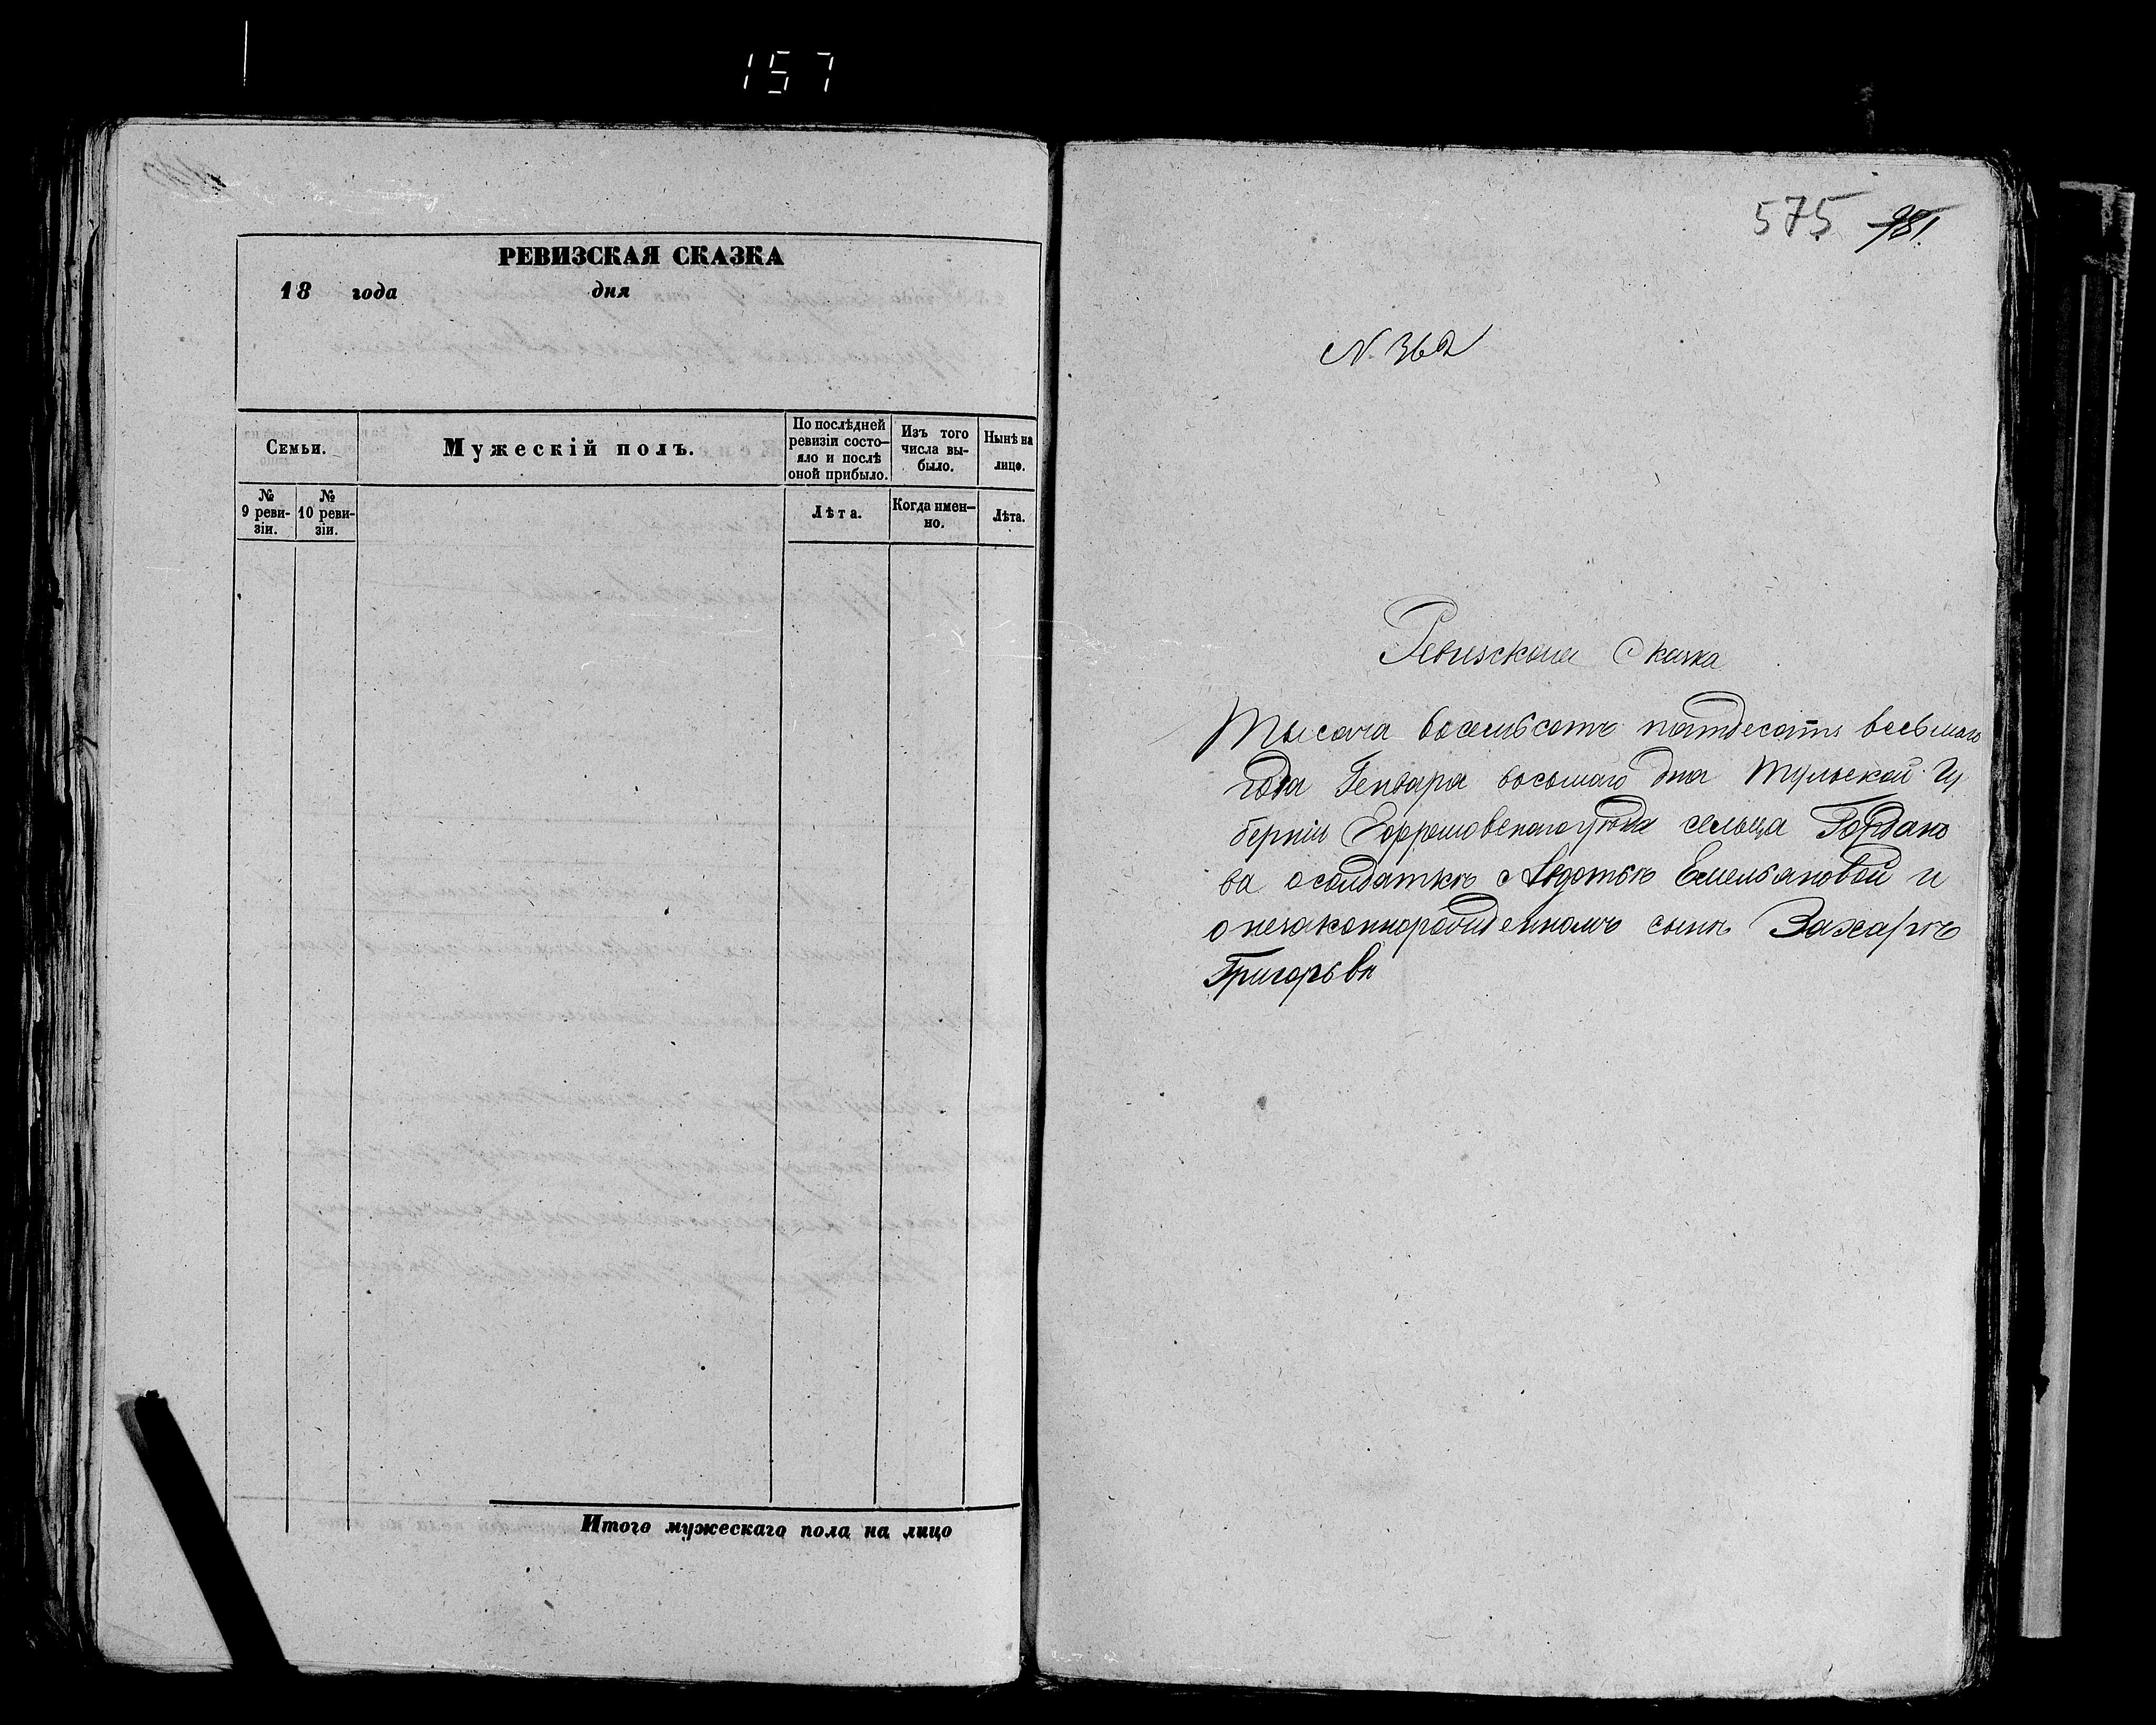 157
РЕВИЗСКАЯ СКАЗКА
18 года дня
Семьи.
Мужескій полъ.
По послѣдней
ревизіи состо-
яло и послѣ
оной прибыло.
Изъ того
числа вы-
было.
Нынѣ на
лицо.
№
9 реви-
зіи.
№
10 реви-
зіи.
Лѣта.
Когда имен-
но.
Лѣта.
Итого мужескаго пола на лицо
575 981.
N. 362
Ревизская Сказка
Тысяча восемьсотъ пятдесятъ восьмаго
года Генваря восьмаго дня Тульской Гу
берніи уѣзда сельца
ва о солдаткѣ Авдотьѣ Емельяновой и
о незаконнорожденномъ сынѣ Захарѣ
Григорьвѣ